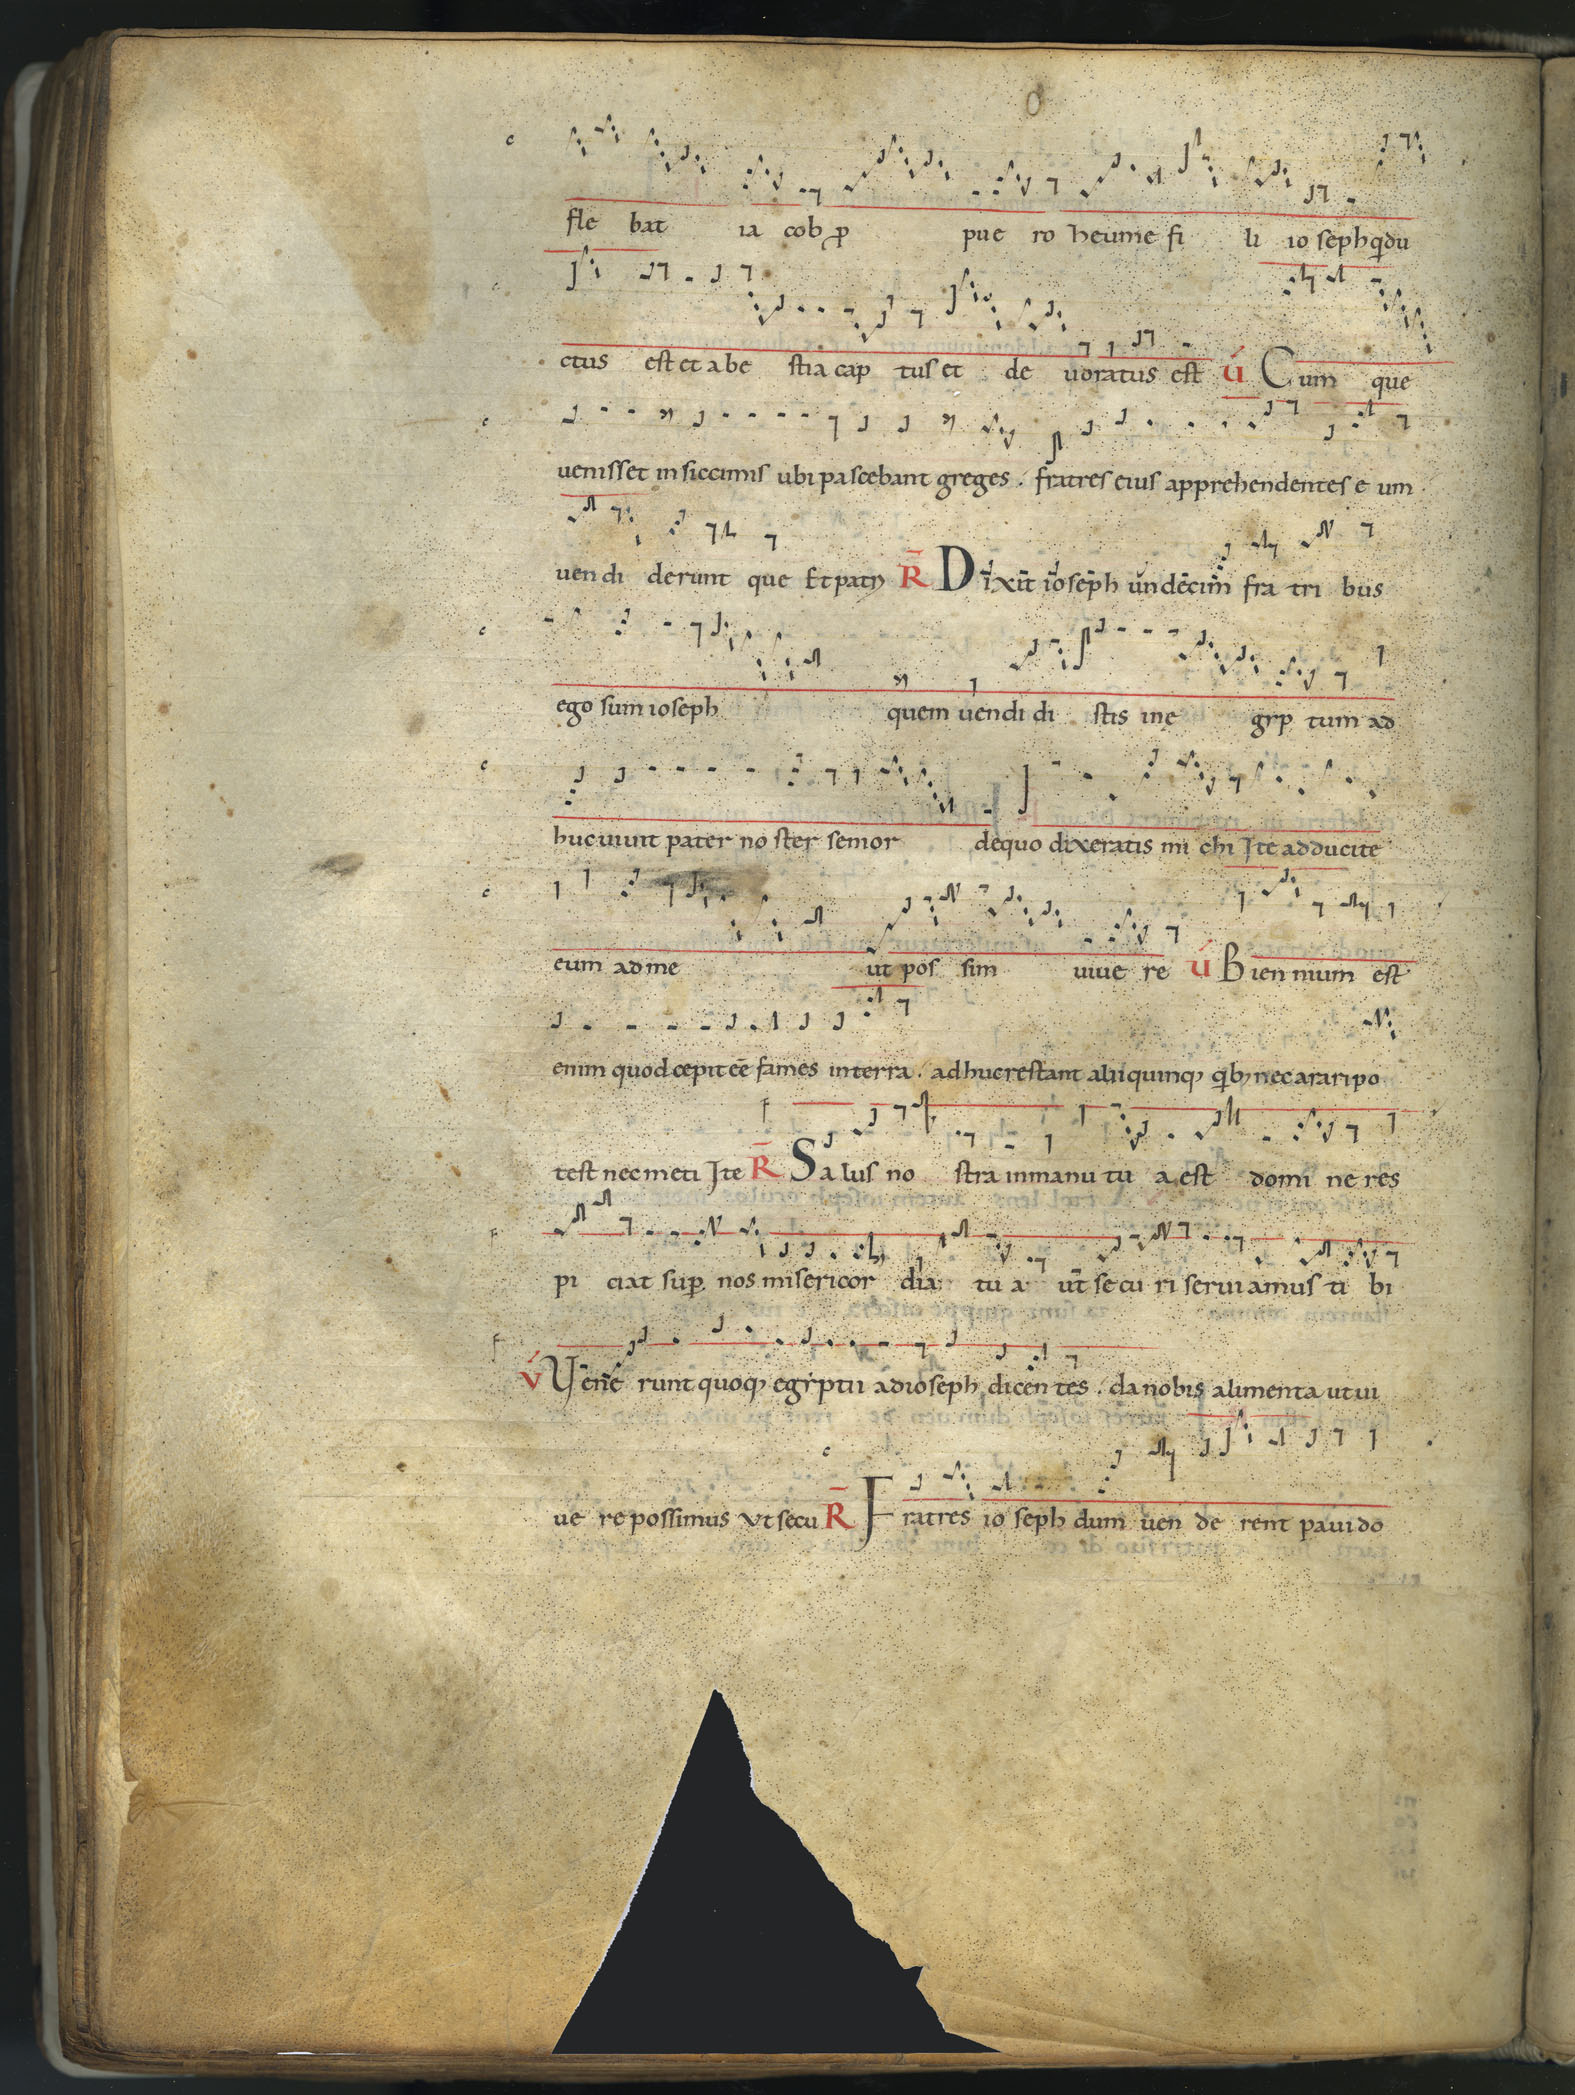 fle bat ia cob ꝓ pue ro heume fi li io seph qꝺu
ctus est et a be stia cap tus et de uoratus est v́ Cum que
uenisset in siccimis ubi pascebant greges . fratres eius apprehendentes e um
uen di derunt que Et patꝰ R̄ Dixit ioseph undecim fra tri bus
ego sum ioseph quem uendi di stis inę gyp tum ad
huc uiuit pater no ster senior dequo dixeratis mi chi Ite adducite
eum adme ut pos sim uiue re v́ Bien nium est
enim quod cepit eē fames interra . adhuc restant alii quinqꝫ qͥbꝫ nec arari po
test nec meti Ite R̄ Salus no stra inmanu tu a est domi ne res
pi ciat sup̱ nos misericor dia tu a ut secu ri seruiamus ti bi
v́ Uene runt quoqꝫ egyptii adioseph dicentes . da nobis alimenta utui
ue re possimus Vt secu R̄ Fratres io seph dum uen de rent pauido